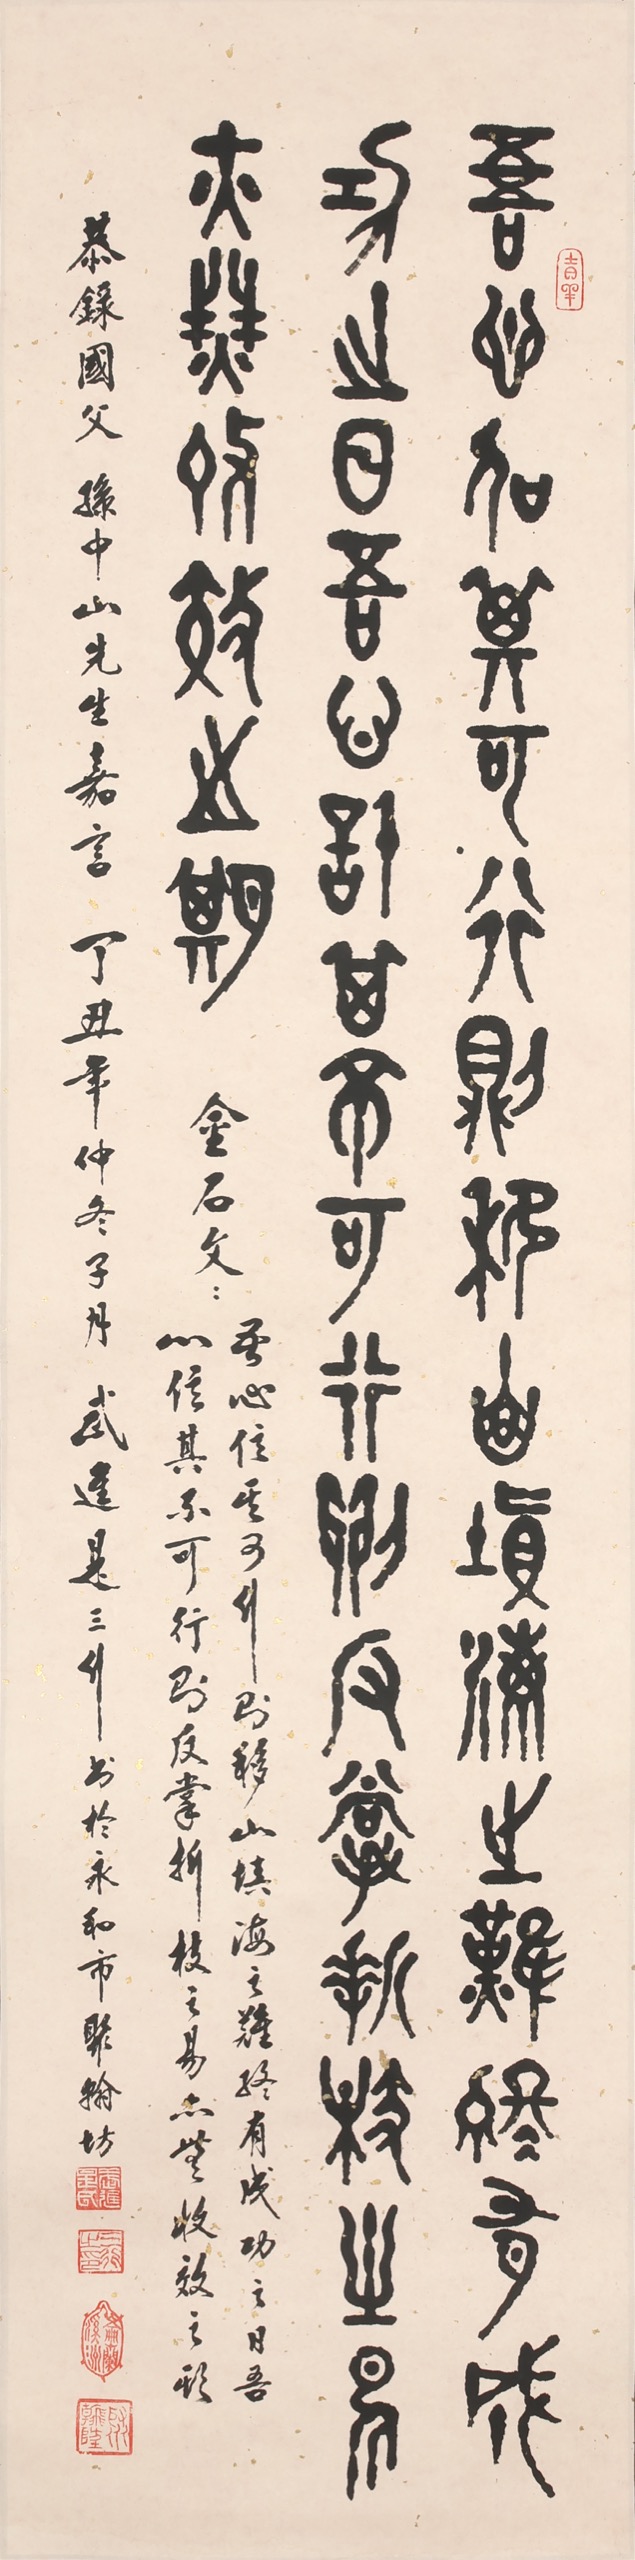 吉羊
吾心信其可行則移山填海之難終有成
功之日吾心信其不可行則反掌折枝之易
亦無收效之期
金石文：
吾心信其可行則移山填海之難終有成功之日吾
心信其不可行則反掌折枝之易亦無收效之期
恭錄國父 孫中山先生嘉言 丁丑年仲冬子月 武進是三行書於永和市聚翰坊